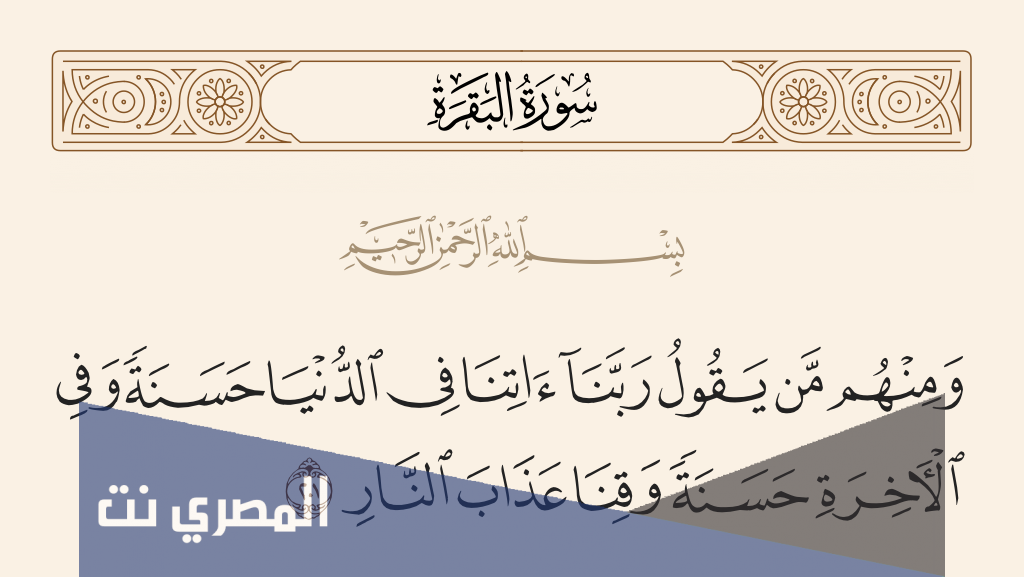 سُورَةُ البَقَرَةِ
بِسْمِ ٱللَّهِ ٱلرَّحْمَٰنِ ٱلرَّحِيمِ
وَمِنْهُم مَّن يَقُولُ رَبَّنَآ ءَاتِنَا فِى ٱلدُّنْيَا حَسَنَةً وَفِى
ٱلْأَخِرَةِ حَسَنَةً وَقِنَا عَذَابَ ٱلنَّارِ
المصري نت